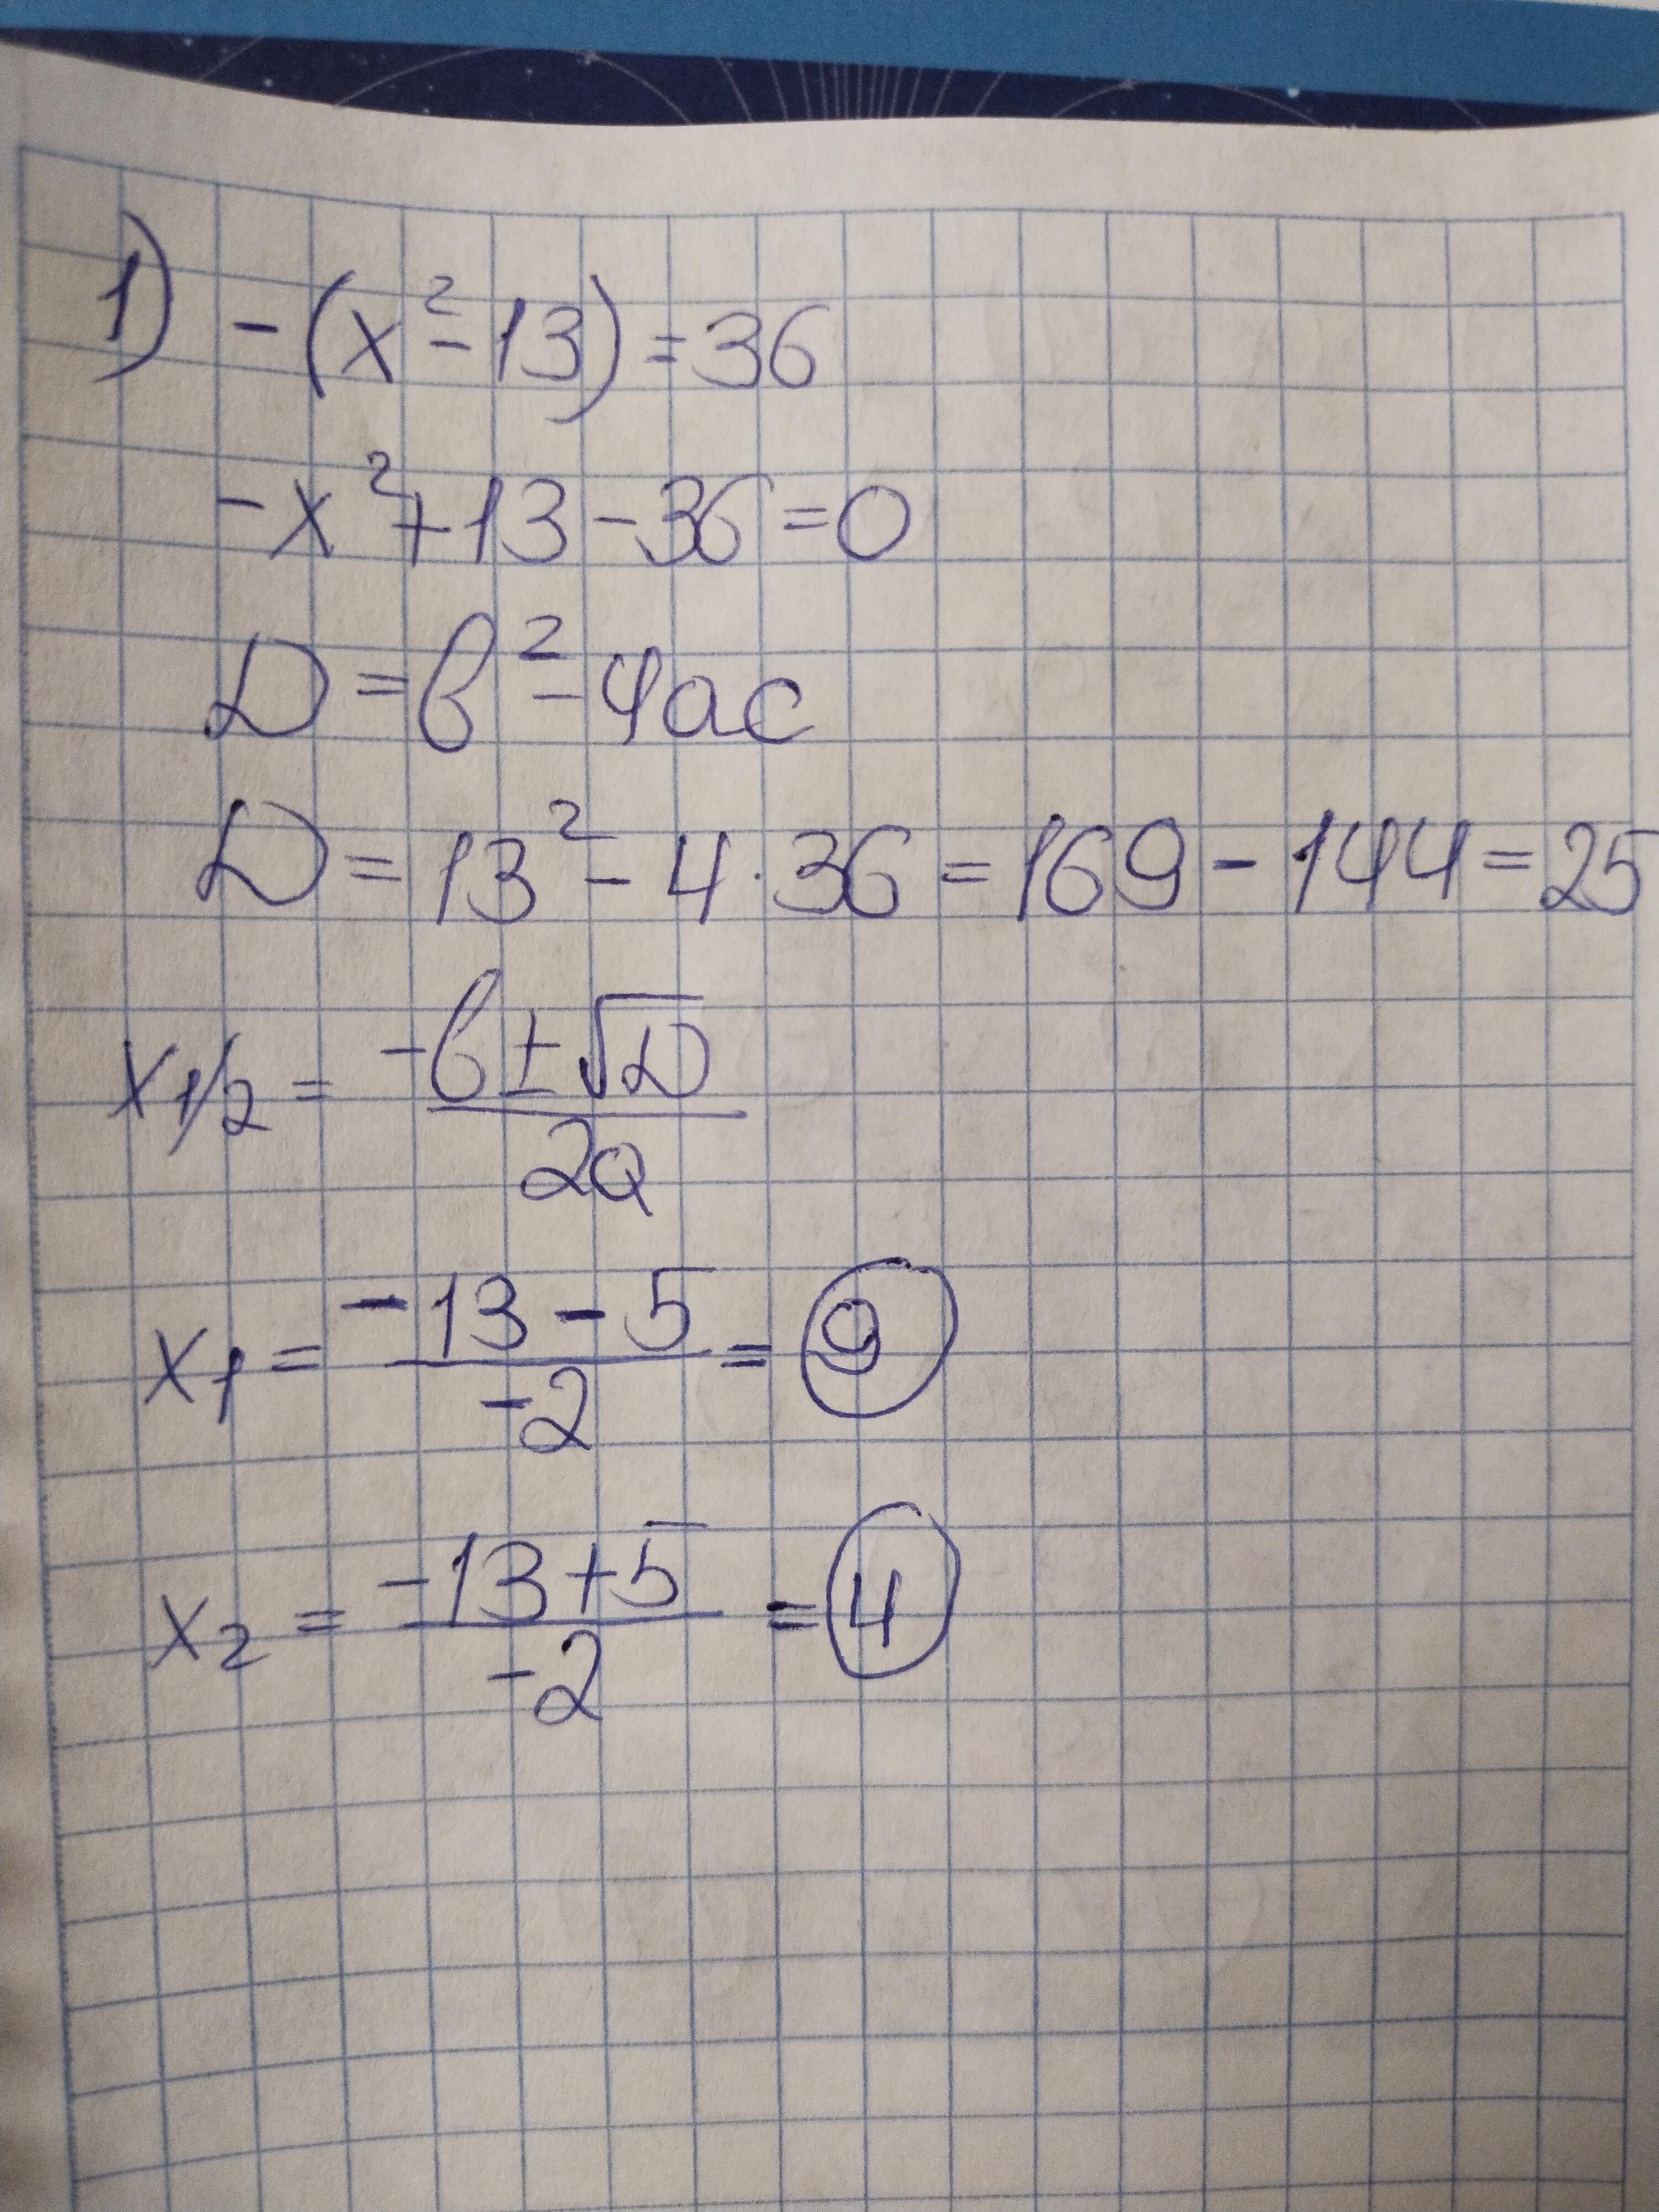 1) -(x²-13)=36
-x²+13-36=0
D=в²-4ac
D=13²-4·36=169-144=25
x1/2 = -в±√D / 2a
x1 = -13-5 / -2 = 9
x2 = -13+5 / -2 = 4